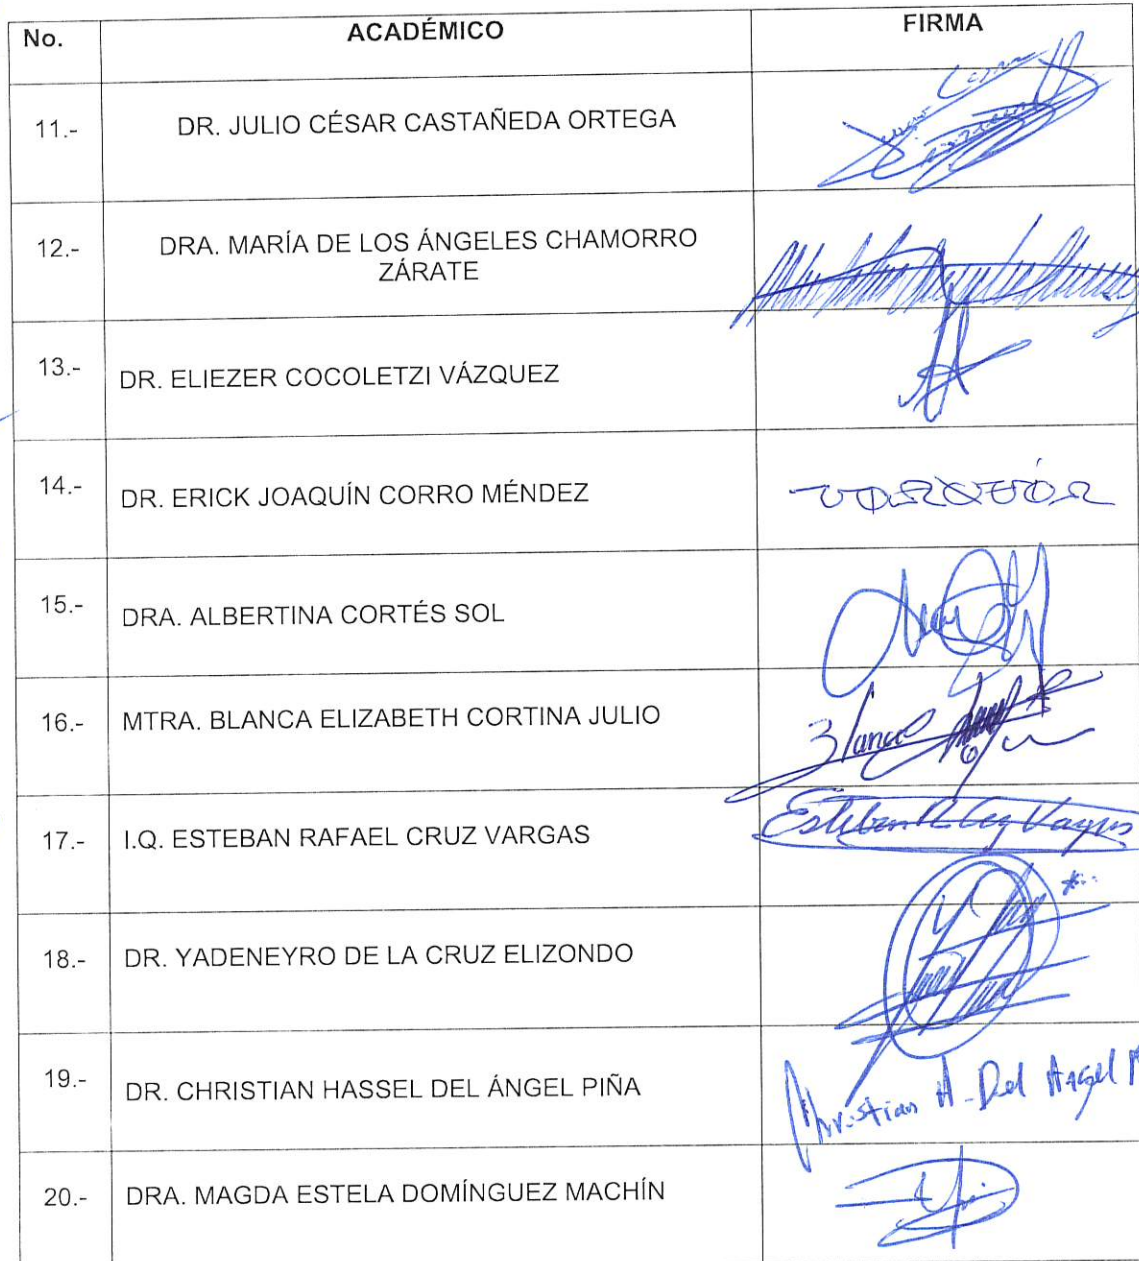 No. ACADÉMICO FIRMA
11.- DR. JULIO CÉSAR CASTAÑEDA ORTEGA
12.- DRA. MARÍA DE LOS ÁNGELES CHAMORRO
ZÁRATE
13.- DR. ELIEZER COCOLETZI VÁZQUEZ
14.- DR. ERICK JOAQUÍN CORRO MÉNDEZ
15.- DRA. ALBERTINA CORTÉS SOL
16.- MTRA. BLANCA ELIZABETH CORTINA JULIO
Blanca
17.- I.Q. ESTEBAN RAFAEL CRUZ VARGAS
Esteban R Cruz Vargas
18.- DR. YADENEYRO DE LA CRUZ ELIZONDO
19.- DR. CHRISTIAN HASSEL DEL ÁNGEL PIÑA
Christian H. Del Angel P
20.- DRA. MAGDA ESTELA DOMÍNGUEZ MACHÍN